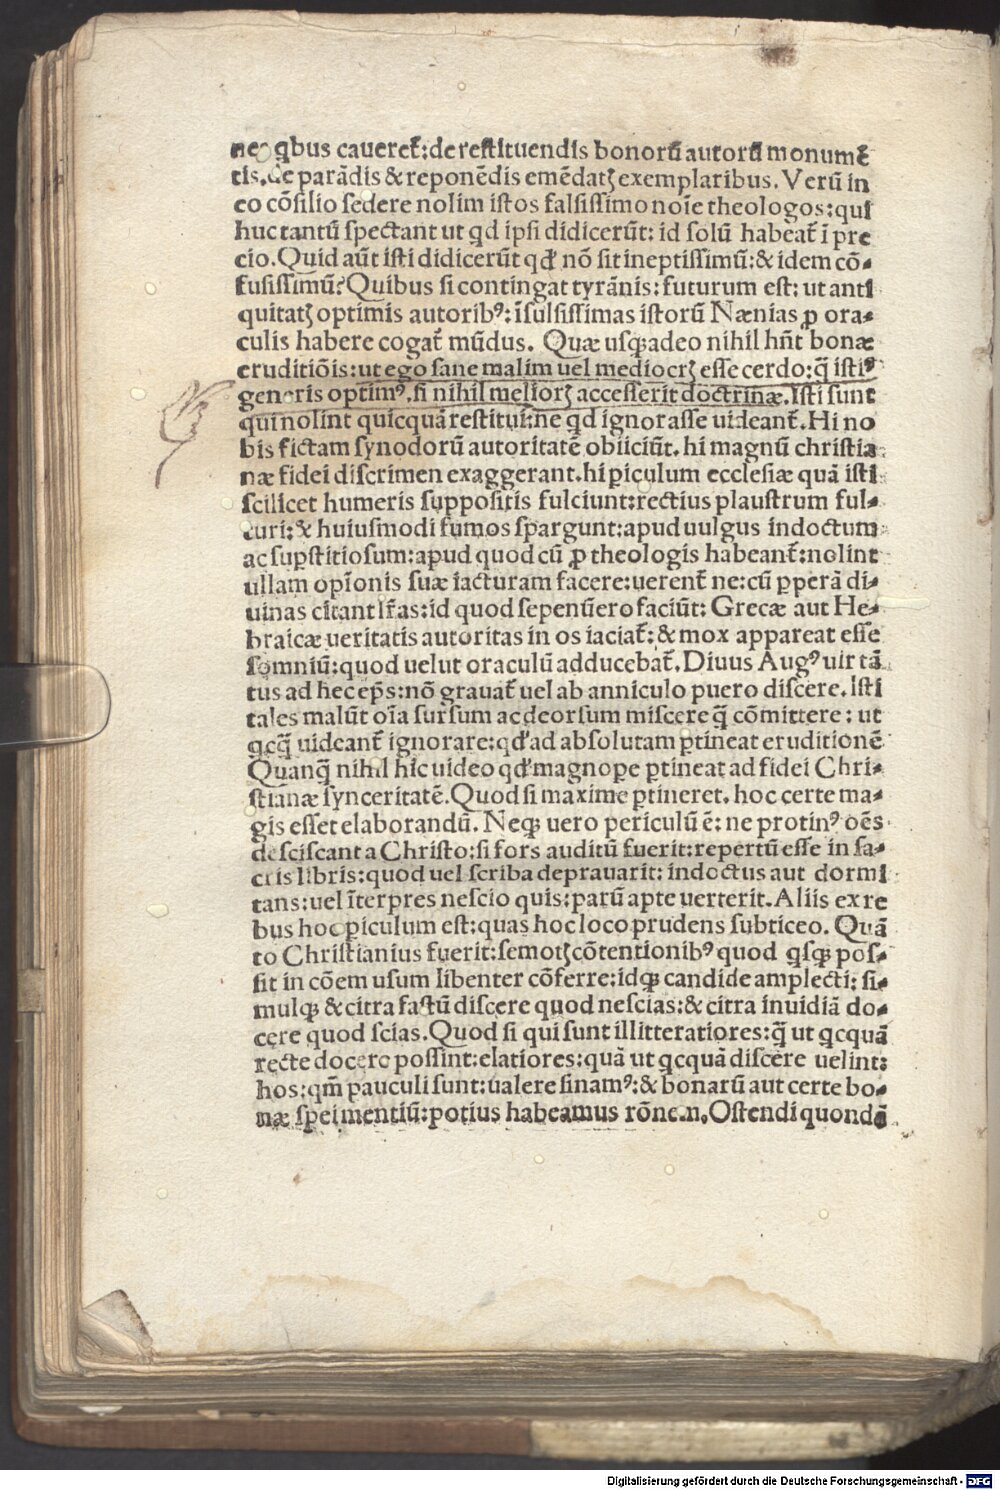 ne qbus caueret̃: de restituendis bonorũ autorũ monumẽ
tis. de parãdis & reponẽdis emẽdatꝭ exemplaribus. Verũ in
eo cõsilio sedere nolim istos falsissimo noĩe theologos: qui
huc tantũ spectant ut qd ipsi didicerũt: id solũ habeat̃ ĩ pre
cio. Quid aũt isti didicerũt qđ nõ sit ineptissimũ: & idem cõ-
fusissimũ? Quibus si contingat tyrãnis: futurum est: ut anti
quitatꝭ optimis autoribꝰ: ĩsulsissimas istorũ Nænias ꝓ ora-
culis habere cogat̃ mũdus. Quæ usqꝫ adeo nihil hñt bonæ
eruditiõis: ut ego sane malim uel mediocrꝭ esse cerdo: q̃ istiꝰ
generis optimꝰ. si nihil meliorꝭ accesserit doctrinæ. Isti sunt
qui nolint quicquã restitui: ne qd ignorasse uideant̃. Hi no
bis fictam synodorũ autoritatẽ obiiciũt. hi magnũ christia
næ fidei discrimen exaggerant. hi ꝑiculum ecclesiæ quã isti
scilicet humeris suppositis fulciunt: rectius plaustrum ful-
turi: & huiusmodi fumos spargunt: apud uulgus indoctum
ac suꝑstitiosum: apud quod cũ ꝓ theologis habeant̃: nolint
ullam opĩonis suæ iacturam facere: uerent̃ ne: cũ ꝑperã di-
uinas citant lr̃as: id quod sepenũero faciũt: Grecæ aut He-
braicæ ueritatis autoritas in os iaciat̃: & mox appareat esse
somniũ: quod uelut oraculũ adducebat̃. Diuus Augꝰ uir tã
tus ad hec ep̃s: nõ grauat̃ uel ab anniculo puero discere. Isti
tales malũt oĩa sursum ac deorsum miscere q̃ cõmittere: ut
qcq̃ uideant̃ ignorare: qđ ad absolutam ꝑtineat eruditionẽ
Quanq̃ nihil hic uideo qđ magnope ꝑtineat ad fidei Chri-
stianæ synceritatẽ. Quod si maxime ꝑtineret. hoc certe ma-
gis esset elaborandũ. Neqꝫ uero periculũ ẽ: ne protinꝰ oẽs
desciscant a Christo: si fors auditũ fuerit: repertũ esse in sa-
cris libris: quod uel scriba deprauarit: indoctus aut dormi
tans: uel ĩterpres nescio quis: parũ apte uerterit. Aliis ex re
bus hoc ꝑiculum est: quas hoc loco prudens subticeo. Quã
to Christianius fuerit: semotꝭ cõtentionibꝰ quod qsqꝫ pos-
sit in cõem usum libenter cõferre: idqꝫ candide amplecti: si-
mulqꝫ & citra fastũ discere quod nescias: & citra inuidiã do-
cere quod scias. Quod si qui sunt illitteratiores: q̃ ut qcquã
recte docere possint: elatiores: quã ut qcquã discere uelint:
hos: qm̃ pauculi sunt: ualere sinamꝰ: & bonarũ aut certe bo-
næ spei mentiũ: potius habeamus rõnem. Ostendi quondã
Digitalisierung gefördert durch die Deutsche Forschungsgemeinschaft - DFG